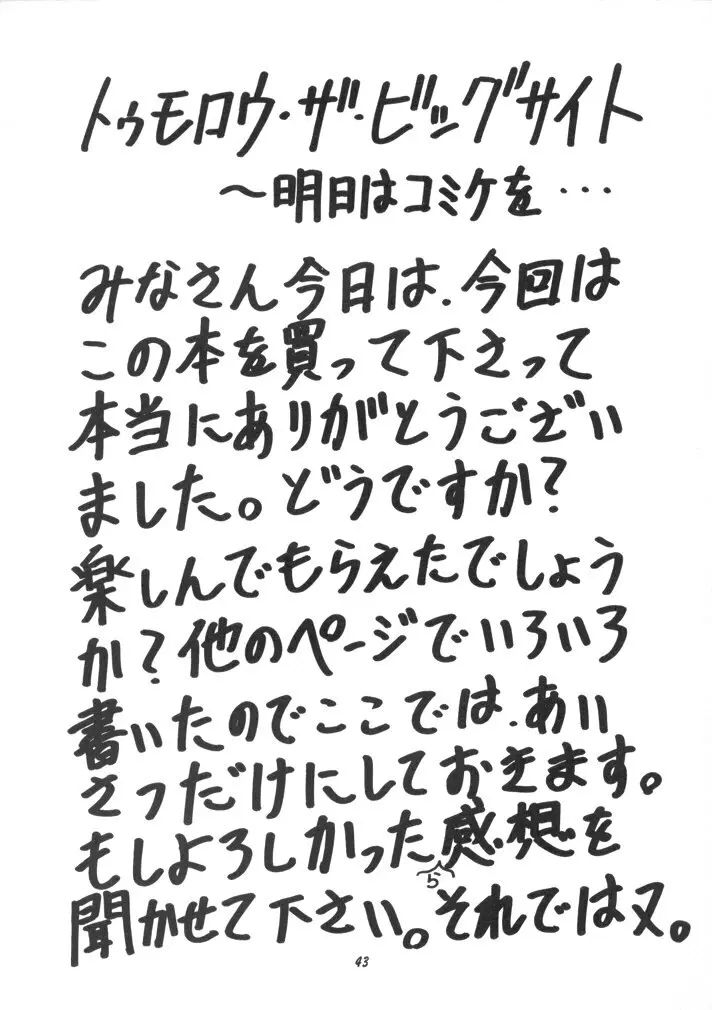 トゥモロウ・ザ・ビッグサイト
～明日はコミケを…
みなさん今日は、今回は
この本を買って下さって
本当にありがとうござい
ました。どうですか?
楽しんでもらえたでしょう
か?他のページでいろいろ
書いたのでここでは、あい
さつだけにしておきます。
もしよろしかったら感想を
聞かせて下さい。それでは又。
43